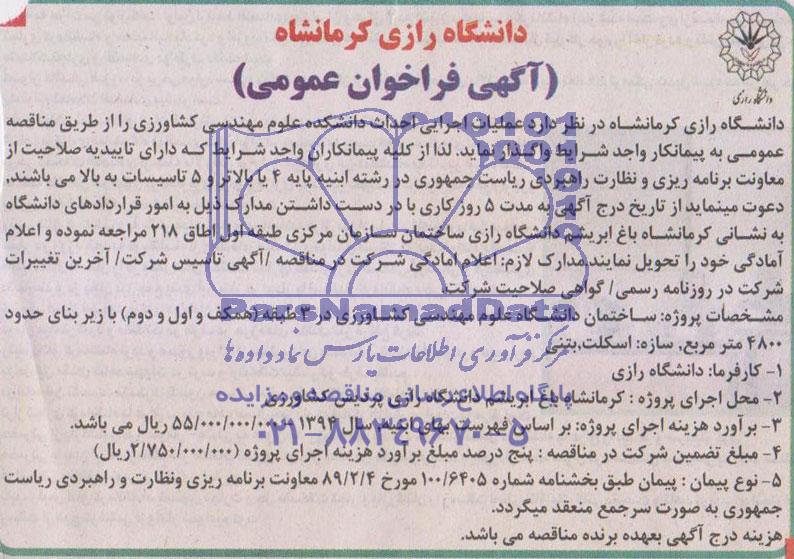 دانشگاه رازی
دانشگاه رازی کرمانشاه
(آگهی فراخوان عمومی)
دانشگاه رازی کرمانشاه در نظر دارد عملیات اجرایی احداث دانشکده علوم مهندسی کشاورزی را از طریق مناقصه
عمومی به پیمانکار واجد شرایط واگذار نماید. لذا از کلیه پیمانکاران واجد شرایط که دارای تاییدیه صلاحیت از
معاونت برنامه ریزی و نظارت راهبردی ریاست جمهوری در رشته ابنیه پایه ۴ یا بالاتر و ۵ تاسیسات به بالا می باشند،
دعوت مینماید از تاریخ درج آگهی به مدت ۵ روز کاری با در دست داشتن مدارک ذیل به امور قراردادهای دانشگاه
به نشانی کرمانشاه باغ ابریشم دانشگاه رازی ساختمان سازمان مرکزی طبقه اول اطاق ۲۱۸ مراجعه نموده و اعلام
آمادگی خود را تحویل نمایند.مدارک لازم: اعلام امادگی شرکت در مناقصه /آگهی تاسیس شرکت/ آخرین تغییرات
شرکت در روزنامه رسمی/ گواهی صلاحیت شرکت.
مشخصات پروژه: ساختمان دانشگاه علوم مهندسی کشاورزی در ۳ طبقه (همکف و اول و دوم) با زیر بنای حدود
۴۸۰۰ متر مربع. سازه: اسکلت بتنی
۱- کارفرما: دانشگاه رازی
۲- محل اجرای پروژه : کرمانشاه باغ ابریشم دانشگاه رازی پردیس کشاورزی
۳- برآورد هزینه اجرای پروژه: بر اساس فهرست بهای ابنیه سال ۱۳۹۴ ۵۵/۰۰۰/۰۰۰/۰۰۰ ریال می باشد.
۴- مبلغ تضمین شرکت در مناقصه : پنج درصد مبلغ برآورد هزینه اجرای پروژه (۲/۷۵۰/۰۰۰/۰۰۰ریال)
۵- نوع پیمان : پیمان طبق بخشنامه شماره ۱۰۰/۶۴۰۵ مورخ ۸۹/۲/۴ معاونت برنامه ریزی ونظارت و راهبردی ریاست
جمهوری به صورت سرجمع منعقد میگردد.
هزینه درج آگهی بعهده برنده مناقصه می باشد.
ParsNamadData
مرکز فرآوری اطلاعات پارس نماد داده ها
پایگاه اطلاع رسانی مناقصه و مزایده
۰۲۱-۸۸۳۴۹۶۷۰-۵